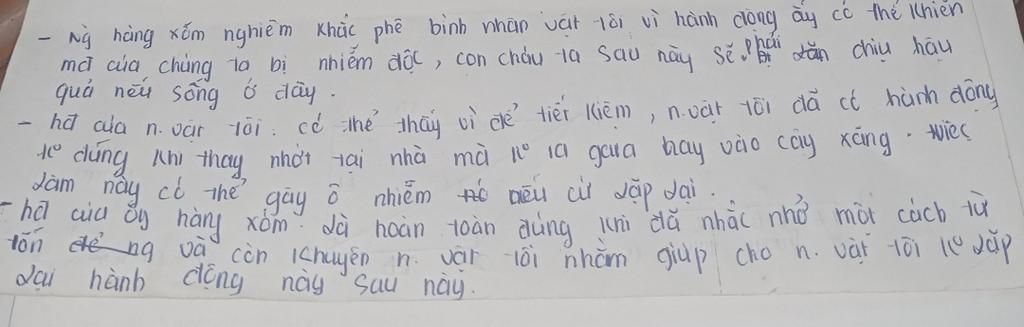 - Ng hàng xóm nghiêm khắc phê bình nhân vật tôi vì hành động ấy có thể khiến
mđ của chúng ta bị nhiễm độc, con cháu ta sau này sẽ phải chịu hậu
quả nếu sống ở đây.
- hđ của n.vật tôi. có thể thấy vì để tiết kiệm, n.vật tôi đã có hành động
ko đúng khi thay nhớt tại nhà mà ko ra gara hay vào cây xăng. việc
làm này có thể gây ô nhiễm nếu cứ lặp lại.
- hđ của ôg hàng xóm. là hoàn toàn đúng khi đã nhắc nhở một cách từ
tốn và còn khuyên n. vật tôi nhằm giúp cho n. vật tôi ko lặp
lại hành động này sau này.